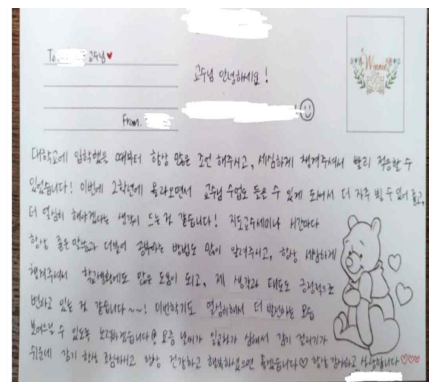 To. 교수님♥
교수님 안녕하세요!
From.
대학교에 입학했을 때부터 항상 많은 조언 해주시고, 세심하게 챙겨주셔서 빨리 적응할 수
있었습니다! 이번에 2학년에 올라오면서 교수님 수업도 들을 수 있게 되어서 더 자주 뵐 수 있어 좋고,
더 열심히 해야겠다는 생각이 드는 것 같습니다! 지도교수세미나 시간마다
항상 좋은 말씀과 더불어 공부하는 방법도 많이 알려주시고, 항상 세심하게
챙겨주셔서 학교생활에도 많은 도움이 되고, 제 생각과 태도도 긍정적으로
변하고 있는 것 같습니다~~! 이번학기도 열심히해서 더 발전하는 모습
보여드릴 수 있도록 노력하겠습니다 요즘 날씨가 일교차가 심해서 감기 걸리기가
쉬운데 감기 항상 조심하시고 항상 건강하고 행복하셨으면 좋겠습니다♡ 항상 감사하고 사랑합니다♡♡♡